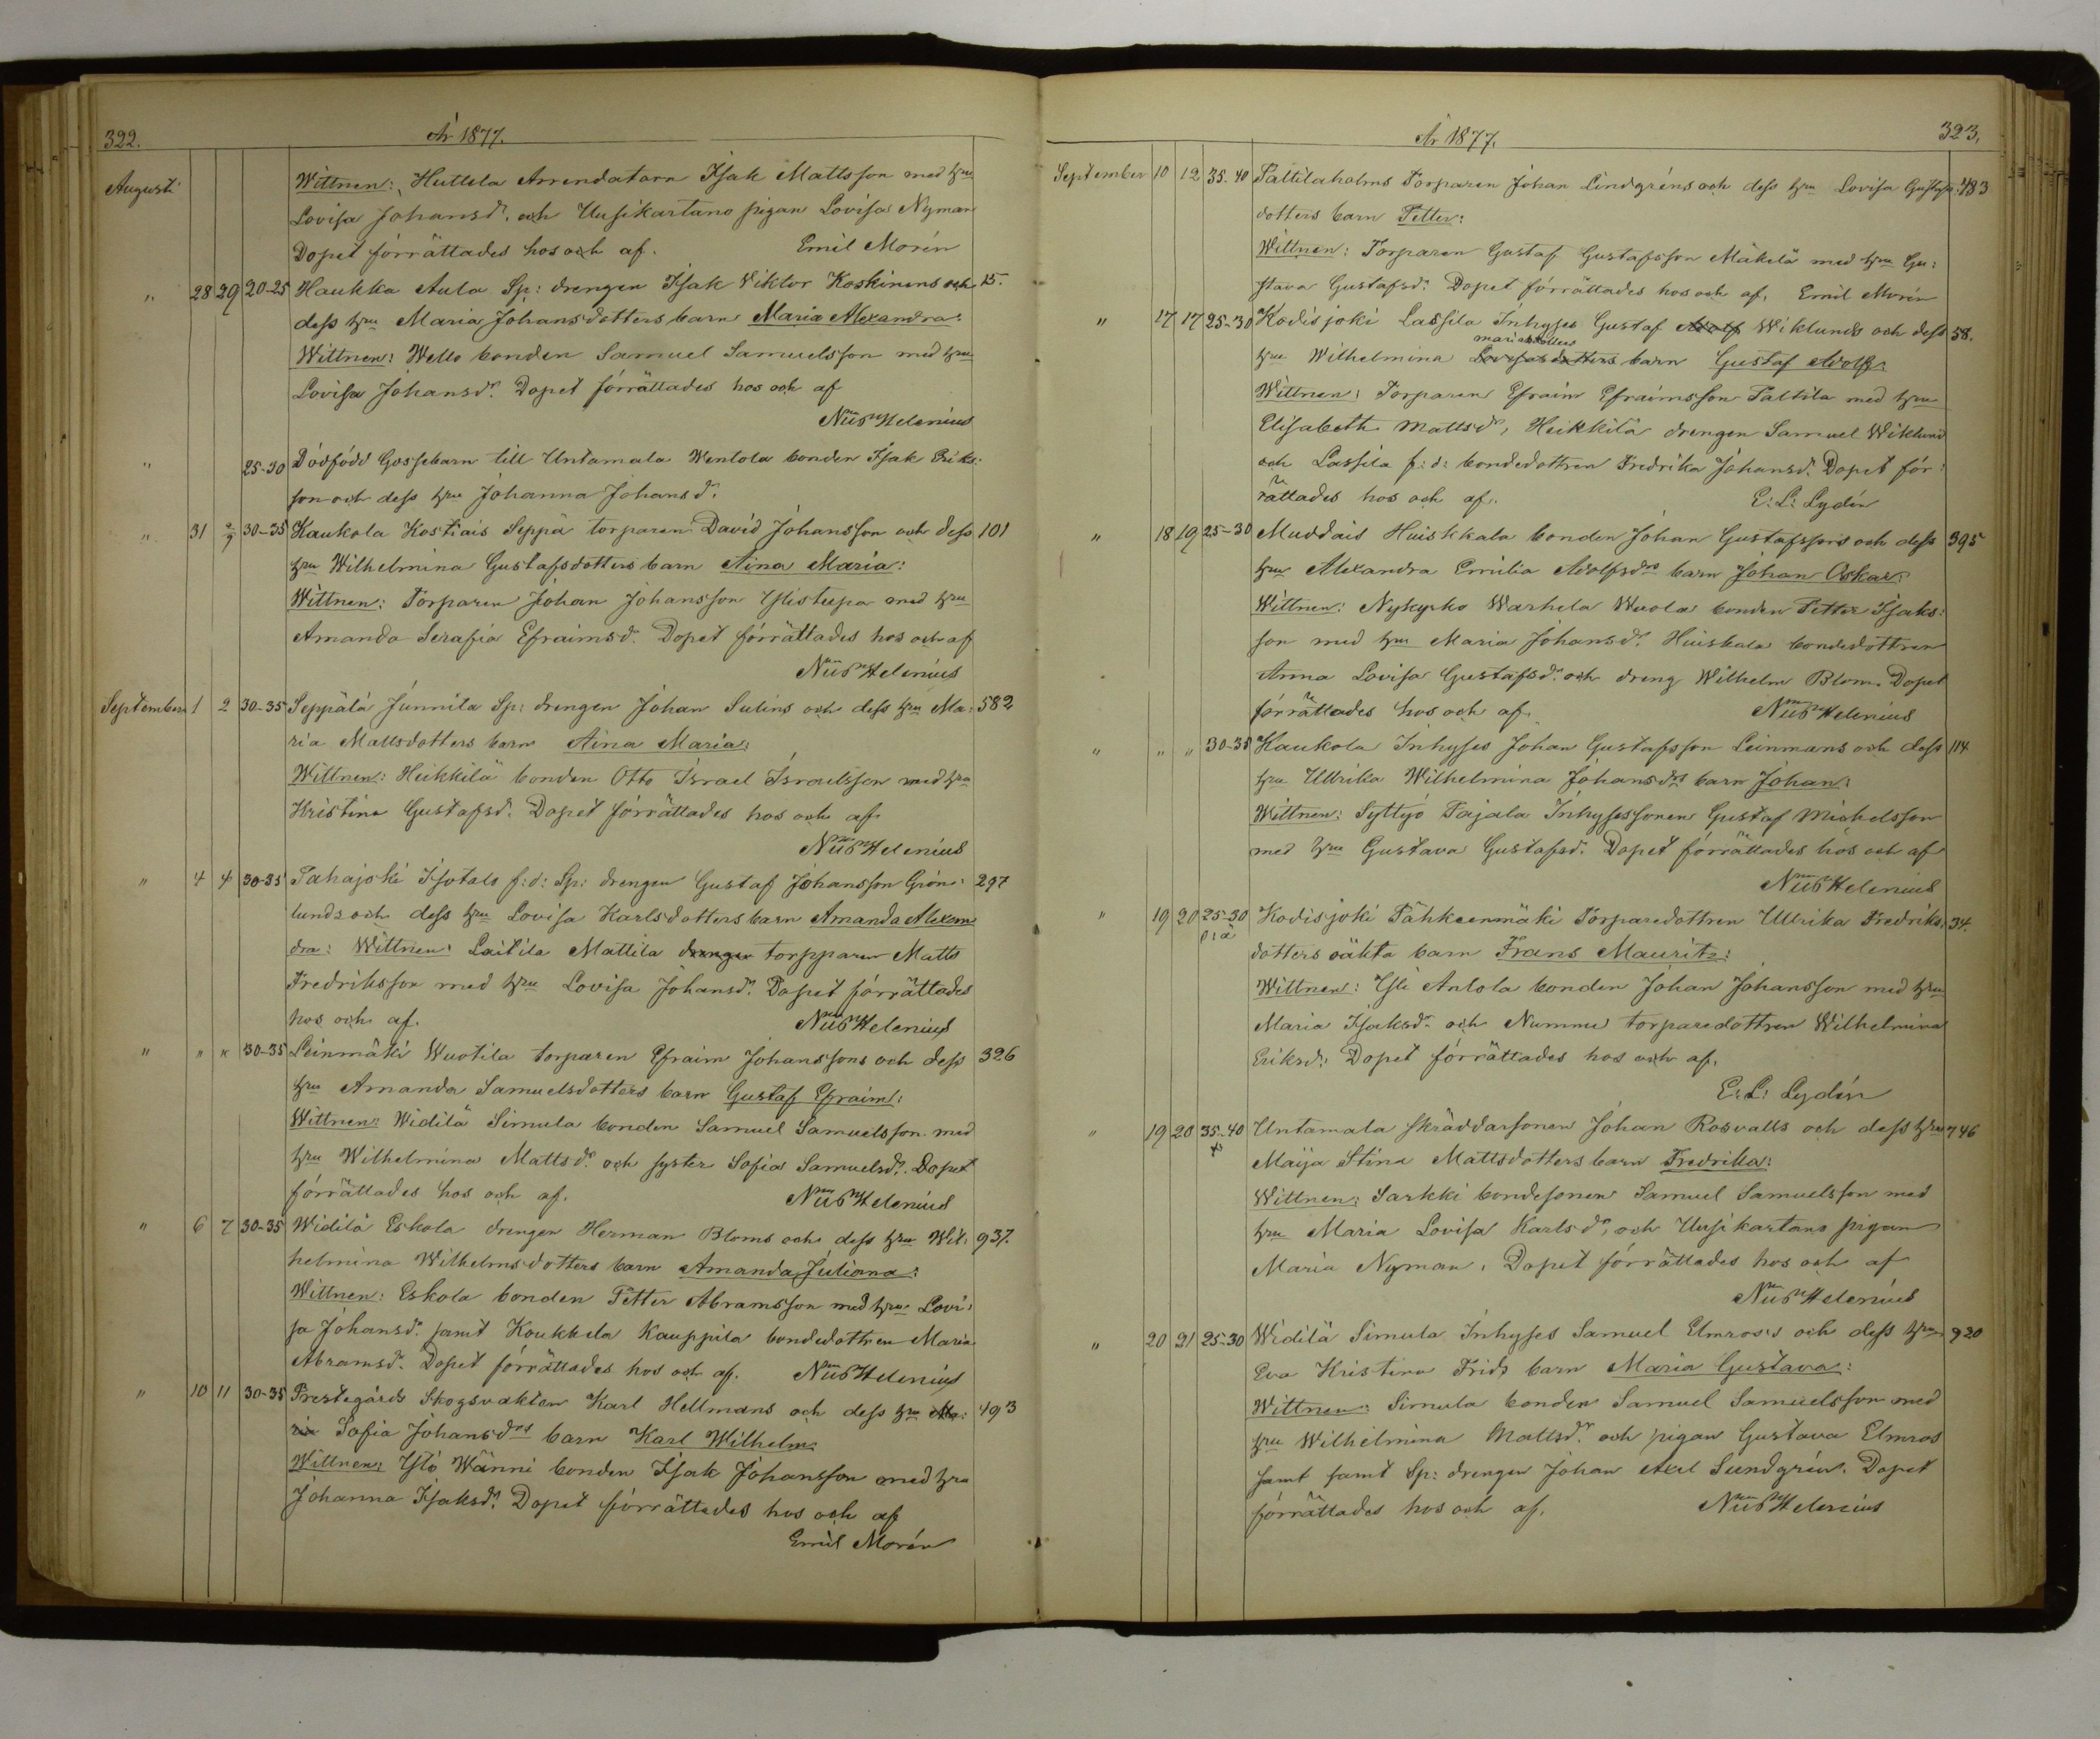 322.
År 1877.
Augusti
Wittnen: Huttila Arrendatorn Isak Mattsson med hru
Lovisa Johansdr. och Uusikartano pigan Lovisa Nyman
Dopet förrättades hos och af. Emil Morén
" 28 29 20-25 Haukka Aula Sp: drengen Isak Wiktor Koskinens och 15.
dess hru Maria Johansdotters barn Maria Alexandra:
Wittnen: Wello bonden Samuel Samuelsson med hru
Lovisa Johansdr. Dopet förrättades hos och af
Helenius
" 25-30 Dödfödd Gossebarn till Untamala Wentola bonden Isak Eriks:
son och dess hru Johanna Johansdr.
" 31 2/9 30-35 Kaukola Kostiais Seppä torparen David Johansson och dess 101
hru Wilhelmina Gustafsdotters barn Aina Maria:
Wittnen: Torparen Johan Johansson Ylistupa med hru
Amanda Serafia Efraimsdr. Dopet förrättades hos och af
Helenius
September 1 2 30-35 Seppälä Junnila Sp: drengen Johan Sulins och dess hru Ma: 582
ria Mattsdotters barn Aina Maria:
Wittnen: Heikkilä bonden Otto Israel Israelsson med hru
Kristina Gustafsdr. Dopet förrättades hos och af
Helenius
" 4 4 30-35 Pahajoki Isotalo f:d: Sp: drengen Gustaf Johansson Grön: 297
lunds och dess hru Lovisa Karlsdotters barn Amanda Alexan
dra: Wittnen: Laitila Mattila drengen torpparen Matts
Fredriksson med hru Lovisa Johansdr. Dopet förrättades
hos och af. Helenius
" " " 30-35 Leinmäki Wuotila torparen Efraim Johanssons och dess 326
hru Amanda Samuelsdotters barn Gustaf Efraim:
Wittnen: Widilä Simula bonden Samuel Samuelsson med
hru Wilhelmina Mattsdr. och syster Sofia Samuelsdr. Dopet
förrättades hos och af. Helenius
" 6 7 30-35 Widilä Eskola drengen Herman Bloms och dess hru Wil: 937.
helmina Wilhelmsdotters barn Amanda Juliana:
Wittnen: Eskola bonden Petter Abramsson med hru Lovi:
sa Johansdr. samt Koukkela Kauppila bondedottren Maria
Abramsdr. Dopet förrättades hos och af. Helenius
" 10 11 30-35 Prestegårds Skogsvakten Karl Hellmans och dess hru Ma: 493
ria Sofia Johansdrs barn Karl Wilhelm:
Wittnen: Ylö Wänni bonden Isak Johansson med hru
Johanna Isaksdr. Dopet förrättades hos och af
Emil Morén
År 1877.
323.
September 10 12 35.40 Palttilaholms Torparen Johan Lindgréns och dess hru Lovisa Gustafs: 483
dotters barn Petter:
Wittnen: Torparen Gustaf Gustafsson Mäkelä med hru Gu:
stava Gustafsdr. Dopet förrättades hos och af. Emil Morén
" 17 17 25-30 Kodisjoki Lassila Inhyses Gustaf Adolf Wiklunds och dess 58.
mariadotters
hru Wilhelmina Lovisas dotters barn Gustaf Adolf:
Wittnen: Torparen Efraim Efraimsson Palttila med hru
Elisabeth Mattsdr, Heikkilä drengen Samuel Wiklund
och Lassila f:d: bondedottren Fredrika Johansdr. Dopet för:
rättades hos och af. E: L: Lydén
" 18 19 25-30 Muddais Huiskkala bonden Johan Gustafssons och dess 395
hru Alexandra Emilia Adolfsdrs barn Johan Oskar:
Wittnen: Nykyrko Warhela Wuola bonden Petter Isaks:
son med hru Maria Johansdr. Huiskala bondedottren
Anna Lovisa Gustafsdr. och dreng Wilhelm Blom. Dopet
förrättades hos och af. Helenius
" " " 30-35 Kaukola Inhyses Johan Gustafsson Leinmans och dess 114
hru Ulrika Wilhelmina Johansdrs barn Johan:
Wittnen: Syttyö Pajala Inhysessonen Gustaf Michelsson
med hru Gustava Gustafsdr. Dopet förrättades hos och af
Helenius
" 19 20 25-30 Kodisjoki Pähkeenmäki Torparedottren Ulrika Fredriks: 34.
o: ä dotters oäkta barn Frans Maurits:
Wittnen: Yli Antola bonden Johan Johansson med hru
Maria Isaksdr. och Nummi torparedottren Wilhelmina
Eriksd: Dopet förrättades hos och af.
E: L: Lydén
" 19 20 35-40 Untamala skräddarsonen Johan Rosvalls och dess hru 746
x Maija Stina Mattsdotters barn Fredrika:
Wittnen: Sarkki bondesonen Samuel Samuelsson med
hru Maria Lovisa Karlsdr, och Uusikartano pigan
Maria Nyman. Dopet förrättades hos och af
Helenius
" 20 21 25-30 Widilä Simula Inhyses Samuel Elmros's och dess hru 920
Eva Kristina Frids barn Maria Gustava:
Wittnen: Simula bonden Samuel Samuelsson med
hru Wilhelmina Mattsdr. och pigan Gustava Elmros
samt samt Sp: drengen Johan Axel Sundgrén. Dopet
förrättades hos och af. Helenius